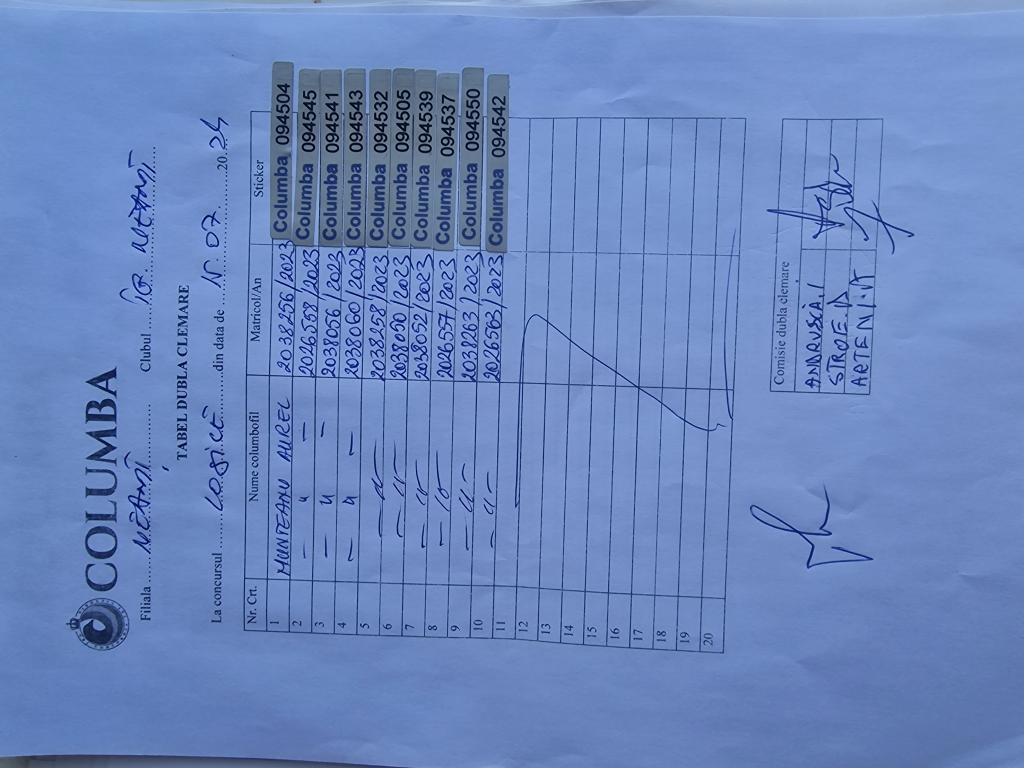 COLUMBA
Filiala ......NEAMȚ............ Clubul ......TG. NEAMȚ......
TABEL DUBLA CLEMARE
La concursul ......LOSICE.........din data de ...... 07.........20..24
Nr. Crt. Nume columbofil Matricol/An Sticker
1 MUNTEANU AUREL 2038256/2023 Columba 094504
2 — 〃 — 2026559/2023 Columba 094545
3 — 〃 — 2038056/2023 Columba 094541
4 — 〃 — 2038060/2023 Columba 094543
5 — 〃 — 2038258/2023 Columba 094532
6 — 〃 — 2038050/2023 Columba 094505
7 — 〃 — 2038052/2023 Columba 094539
8 — 〃 — 2026557/2023 Columba 094537
9 — 〃 — 2038263/2023 Columba 094550
10 — 〃 — 2026563/2023 Columba 094542
11
12
13
14
15
16
17
18
19
20
Comisie dubla clemare
STROE D